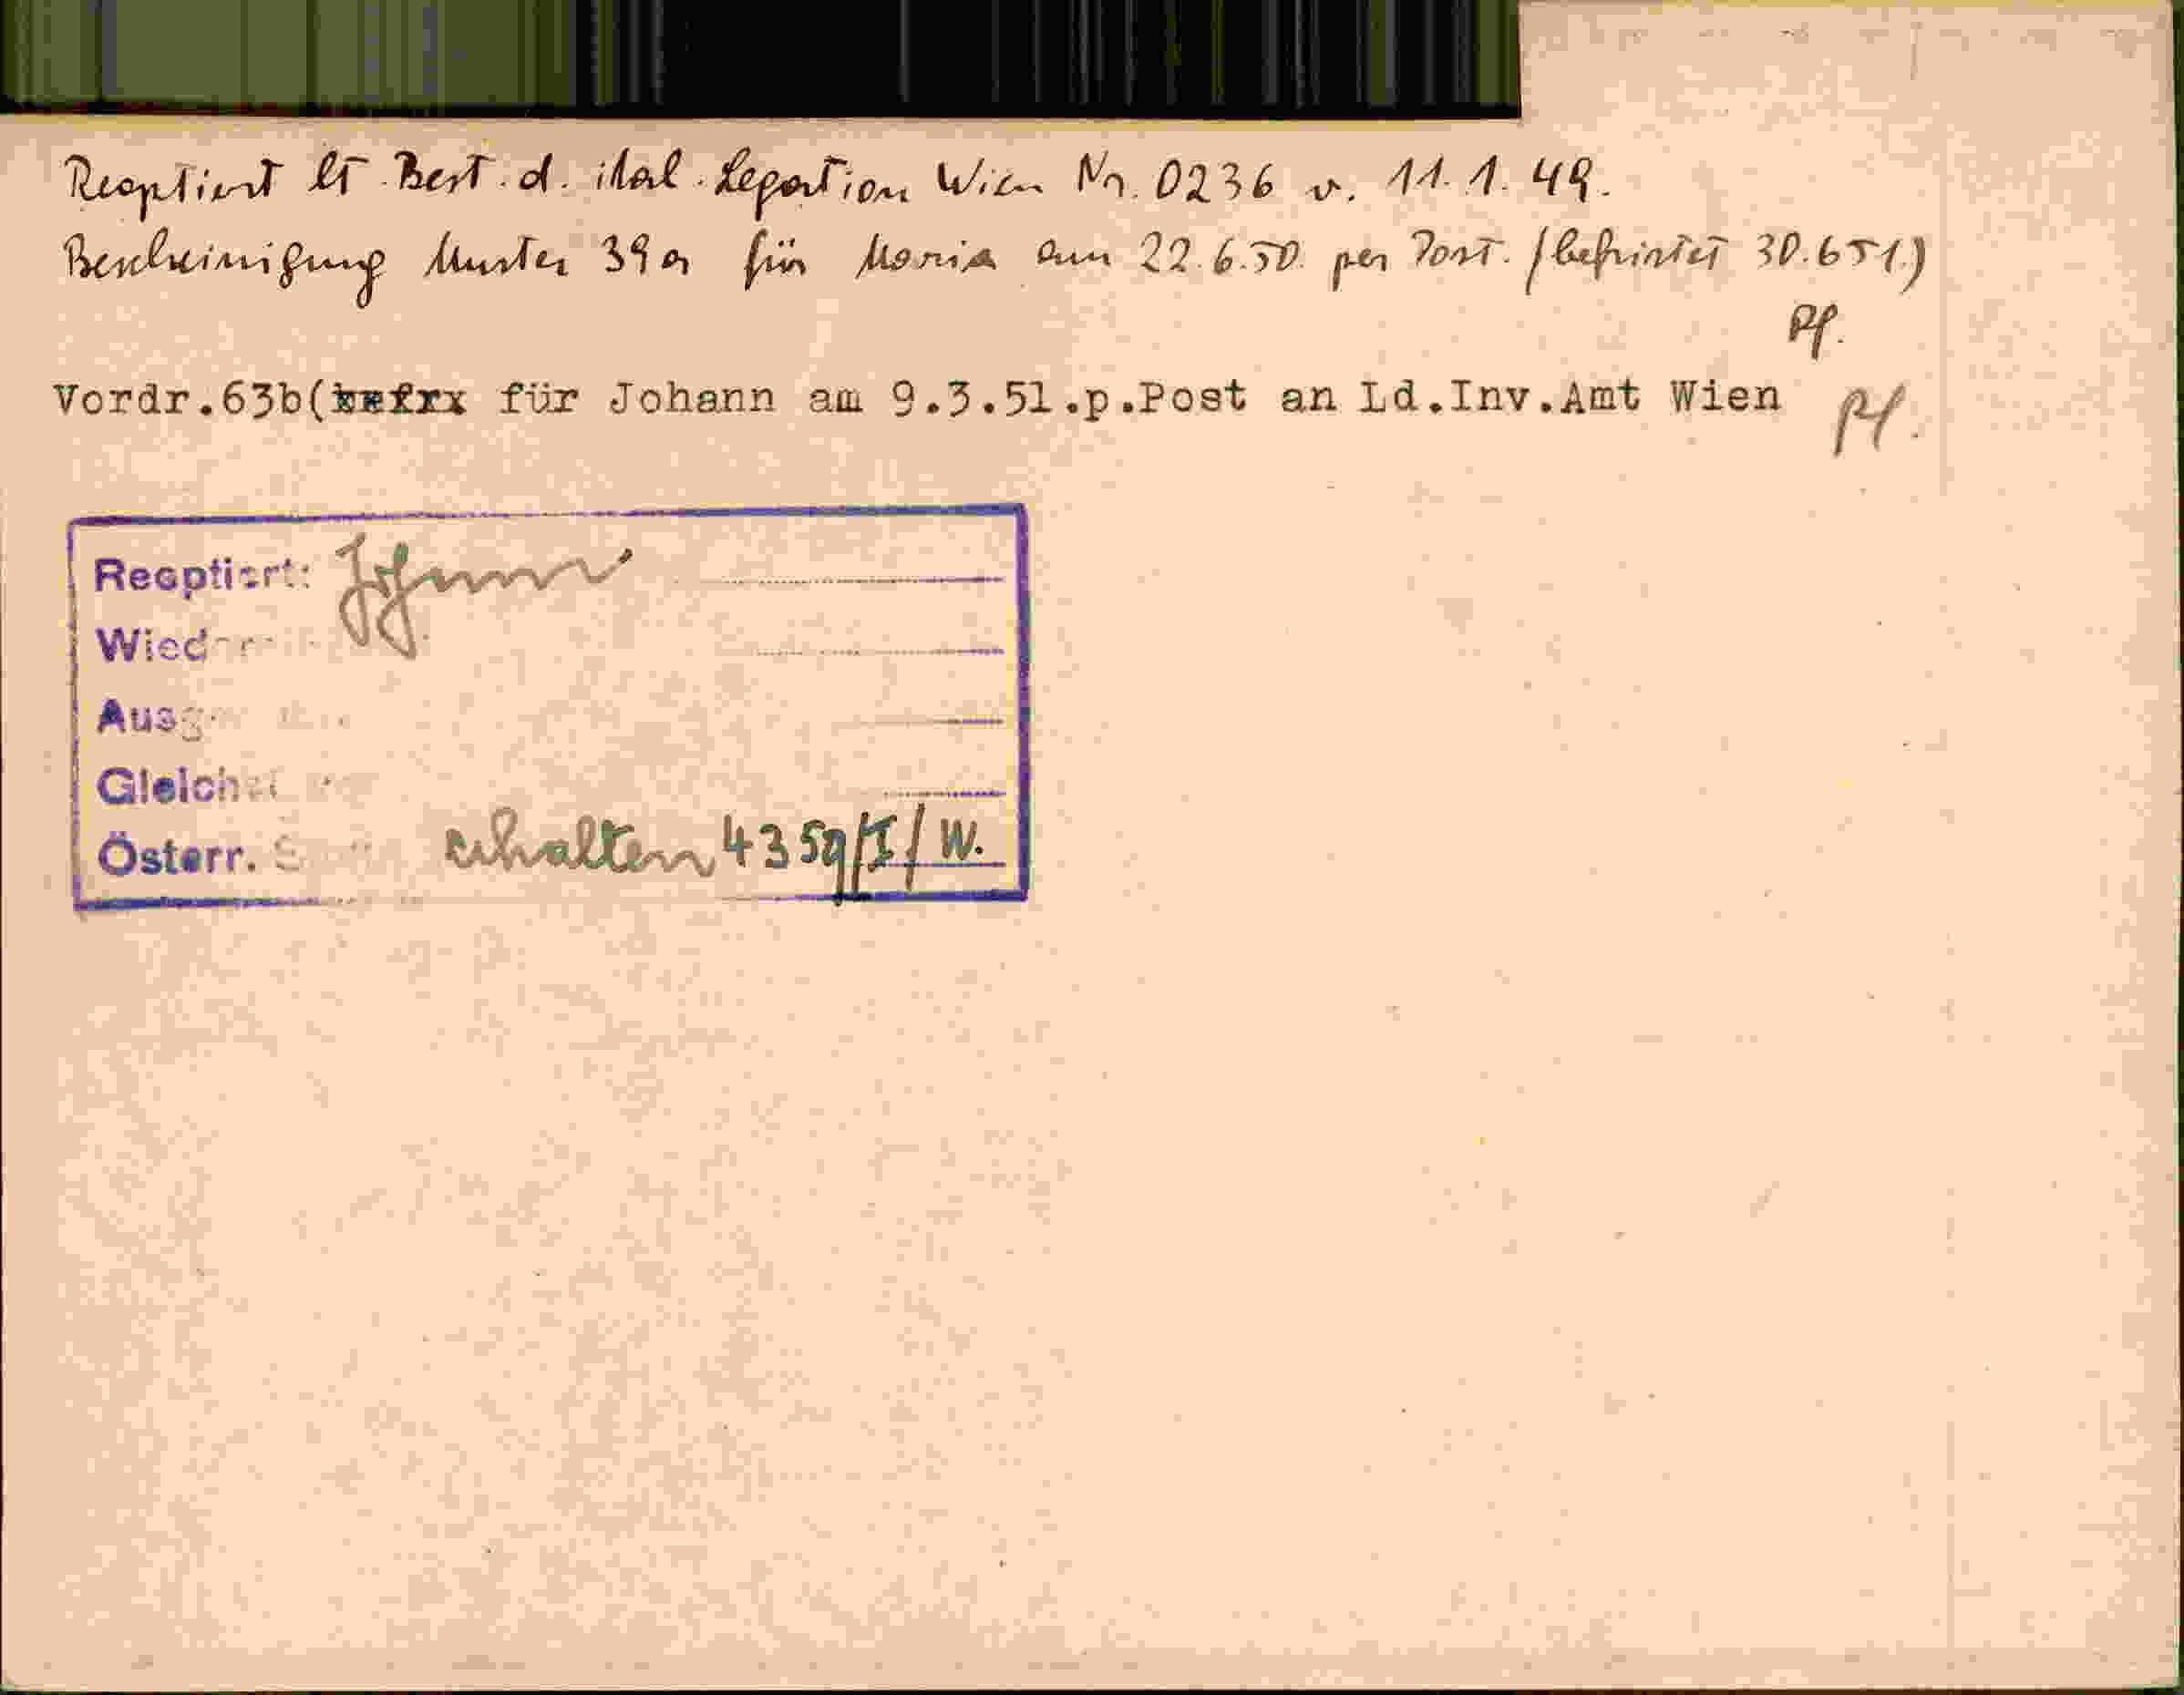 Reoptiert lt. Best. d. ital. Legation Wien Nr. 0236 v. 11.1.49.
Bescheinigung Muster 39a für Maria am 22.6.50. per Post. (befristet 30.6.51.)
Pf.
Vordr.63b( für Johann am 9.3.51.p.Post an Ld.Inv.Amt Wien Pf.
Reoptiert: Johann
Wieder
Ausg
Gleich
Österr. S erhalten 4359/I/W.